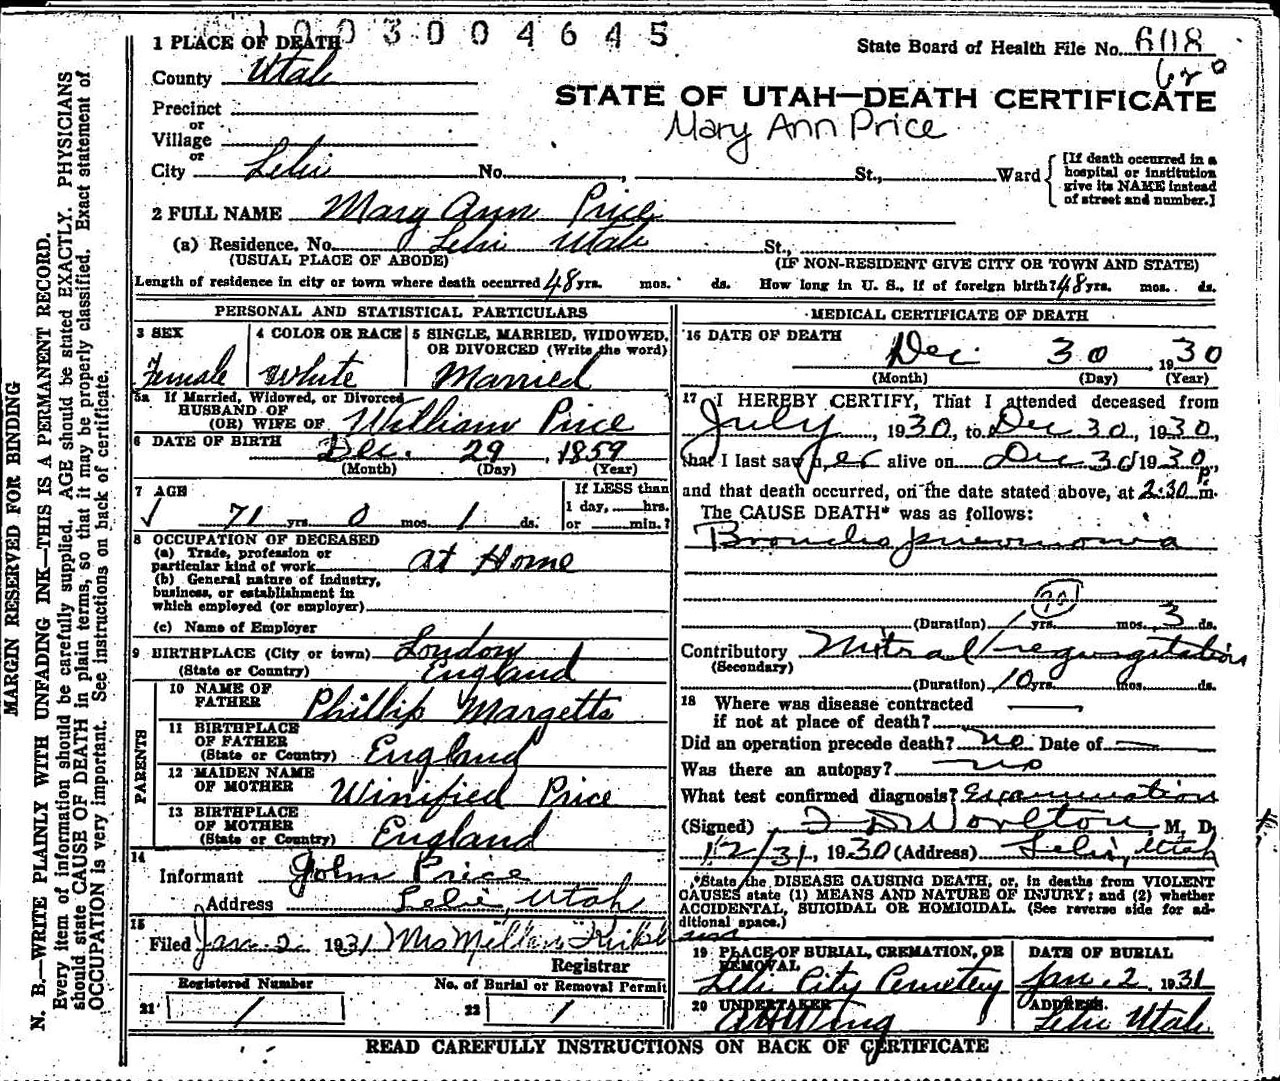 1003004645
1 PLACE OF DEATH
State Board of Health File No. 608
County Utah
620
Precinct
or
Village
or
STATE OF UTAH—DEATH CERTIFICATE
Mary Ann Price
City Lehi No. , St., Ward
[If death occurred in a
hospital or institution
give its NAME instead
of street and number.]
2 FULL NAME Mary Ann Price
(a) Residence, No. Lehi Utah St.,
(USUAL PLACE OF ABODE) (IF NON-RESIDENT GIVE CITY OR TOWN AND STATE)
Length of residence in city or town where death occurred 48 yrs. mos. ds. How long in U. S., if of foreign birth? 48 yrs. mos. ds.
PERSONAL AND STATISTICAL PARTICULARS
3 SEX
Female
4 COLOR OR RACE
White
5 SINGLE, MARRIED, WIDOWED,
OR DIVORCED (Write the word)
Married
5a If Married, Widowed, or Divorced
HUSBAND OF
(OR) WIFE OF William Price
6 DATE OF BIRTH Dec. 29, 1859
(Month) (Day) (Year)
7 AGE
71 yrs. 0 mos. 1 ds.
If LESS than
1 day, hrs.
or min.?
8 OCCUPATION OF DECEASED
(a) Trade, profession or
particular kind of work At Home
(b) General nature of industry,
business, or establishment in
which employed (or employer)
(c) Name of Employer
9 BIRTHPLACE (City or town) London
(State or Country) England
PARENTS
10 NAME OF
FATHER Phillip Margetts
11 BIRTHPLACE
OF FATHER
(State or Country) England
12 MAIDEN NAME
OF MOTHER Winified Price
13 BIRTHPLACE
OF MOTHER
(State or Country) England
14
Informant John Price
Address Lehi, Utah
15
Filed Jan 2 1931 Mrs
Registrar
21 Registered Number
1
22 No. of Burial or Removal Permit
1
MEDICAL CERTIFICATE OF DEATH
16 DATE OF DEATH
Dec. 30, 1930
(Month) (Day) (Year)
17 I HEREBY CERTIFY, That I attended deceased from
July, 1930, to Dec 30, 1930,
that I last saw her alive on Dec 30 1930,
and that death occurred, on the date stated above, at 2:30 p m.
The CAUSE DEATH* was as follows:
Broncho pneumonia
(Duration) yrs. mos. 3 ds.
Contributory Mitral regurgitation
(Secondary)
(Duration) 10 yrs. mos. ds.
18 Where was disease contracted
if not at place of death?
Did an operation precede death? no Date of
Was there an autopsy? no
What test confirmed diagnosis? Examination
(Signed) Worlton, M. D.
12/31, 1930 (Address) Lehi, Utah
*State the DISEASE CAUSING DEATH, or, in deaths from VIOLENT
CAUSES state (1) MEANS AND NATURE OF INJURY; and (2) whether
ACCIDENTAL, SUICIDAL OR HOMICIDAL. (See reverse side for ad-
ditional space.)
19 PLACE OF BURIAL, CREMATION, OR
REMOVAL
Lehi City Cemetery
DATE OF BURIAL
Jan. 2, 1931
20 UNDERTAKER
A H Wing
ADDRESS.
Lehi Utah
READ CAREFULLY INSTRUCTIONS ON BACK OF CERTIFICATE
MARGIN RESERVED FOR BINDING
N. B.—WRITE PLAINLY WITH UNFADING INK—THIS IS A PERMANENT RECORD.
Every item of information should be carefully supplied. AGE should be stated EXACTLY. PHYSICIANS
should state CAUSE OF DEATH in plain terms, so that it may be properly classified. Exact statement of
OCCUPATION is very important. See instructions on back of certificate.